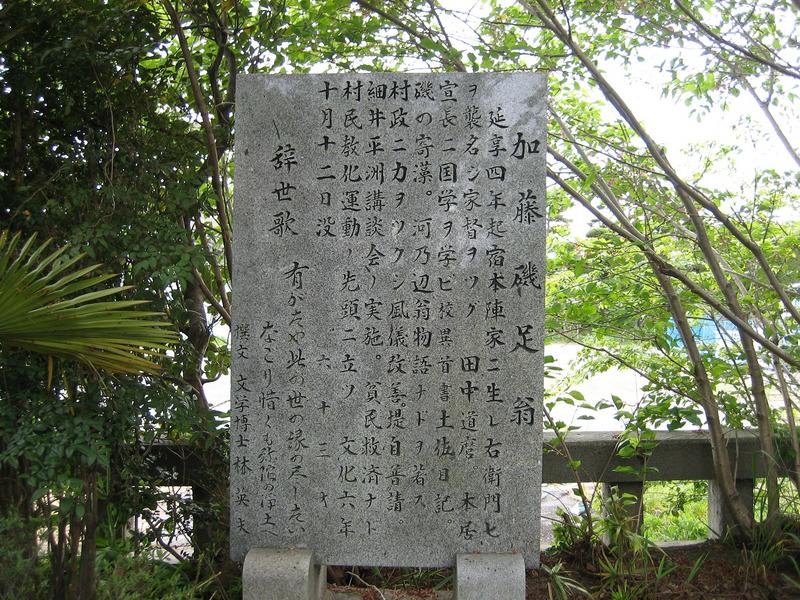 加藤磯足翁
延享四年起宿本陣家ニ生レ右衛門七
ヲ襲名シ家督ヲツグ 田中道麿 本居
宣長ニ国学ヲ学ビ校異首書土佐日記。
磯の寄藻。河乃辺翁物語ナドヲ著ス
村政ニ力ヲツクシ風儀改善堤自普請。
細井平洲講談会ノ実施。貧民救済ナド
村民教化運動ノ先頭ニ立ツ 文化六年
十月十二日没 六十三才
辞世歌 有がたや此の世の縁の尽しだい
なこり惜くも弥陀の浄土へ
撰文 文学博士 林英夫